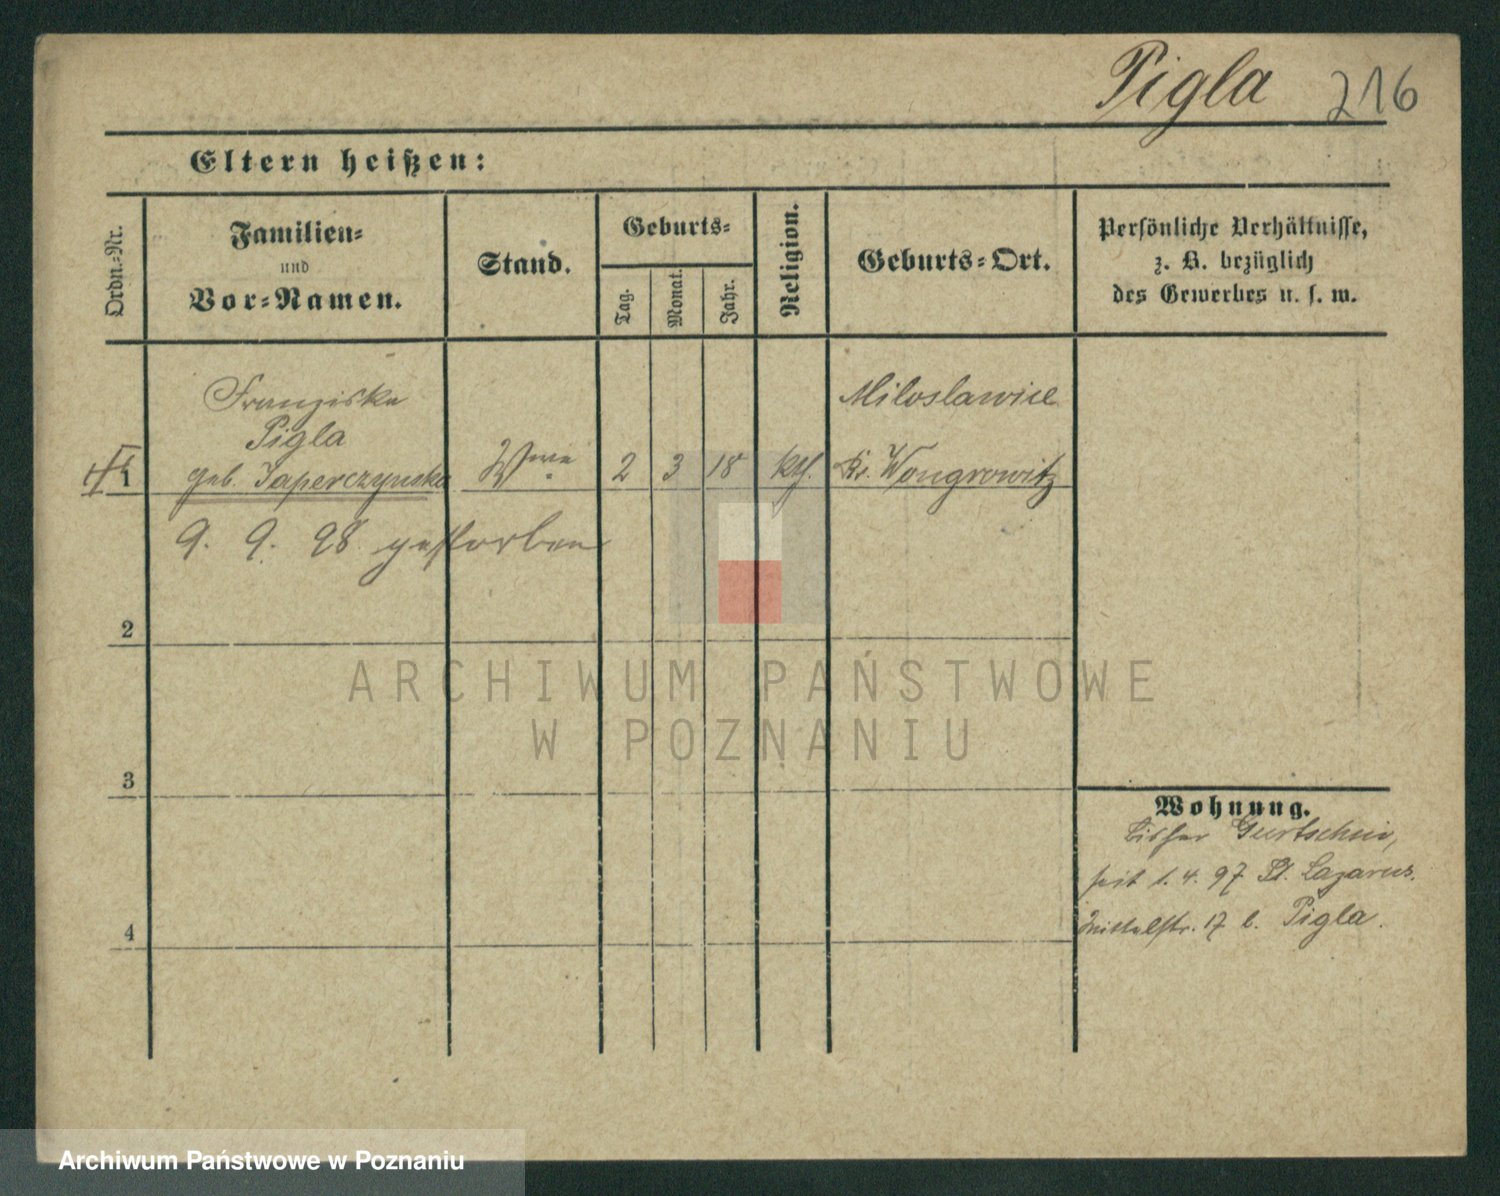 Pigla 216
Eltern heißen:
Ordn.-Nr.
Familien-
und
Vor-Namen.
Stand.
Geburts-
Tag.
Monat.
Jahr.
Religion.
Geburts-Ort.
Persönliche Verhältnisse,
z. B. bezüglich
des Gewerbes u. s. w.
Franziska
Pigla
1 geb. Saperczynska Wwe 2 3 18 kth. Kr. Wongrowitz
Miloslawice
9. 9. 98 gestorben
2
3
4
Wohnung.
Bisher Gurtschin,
seit 1. 4. 97 St. Lazarus.
Mittelstr. 17 b. Pigla.
ARCHIWUM PAŃSTWOWE
W POZNANIU
Archiwum Państwowe w Poznaniu